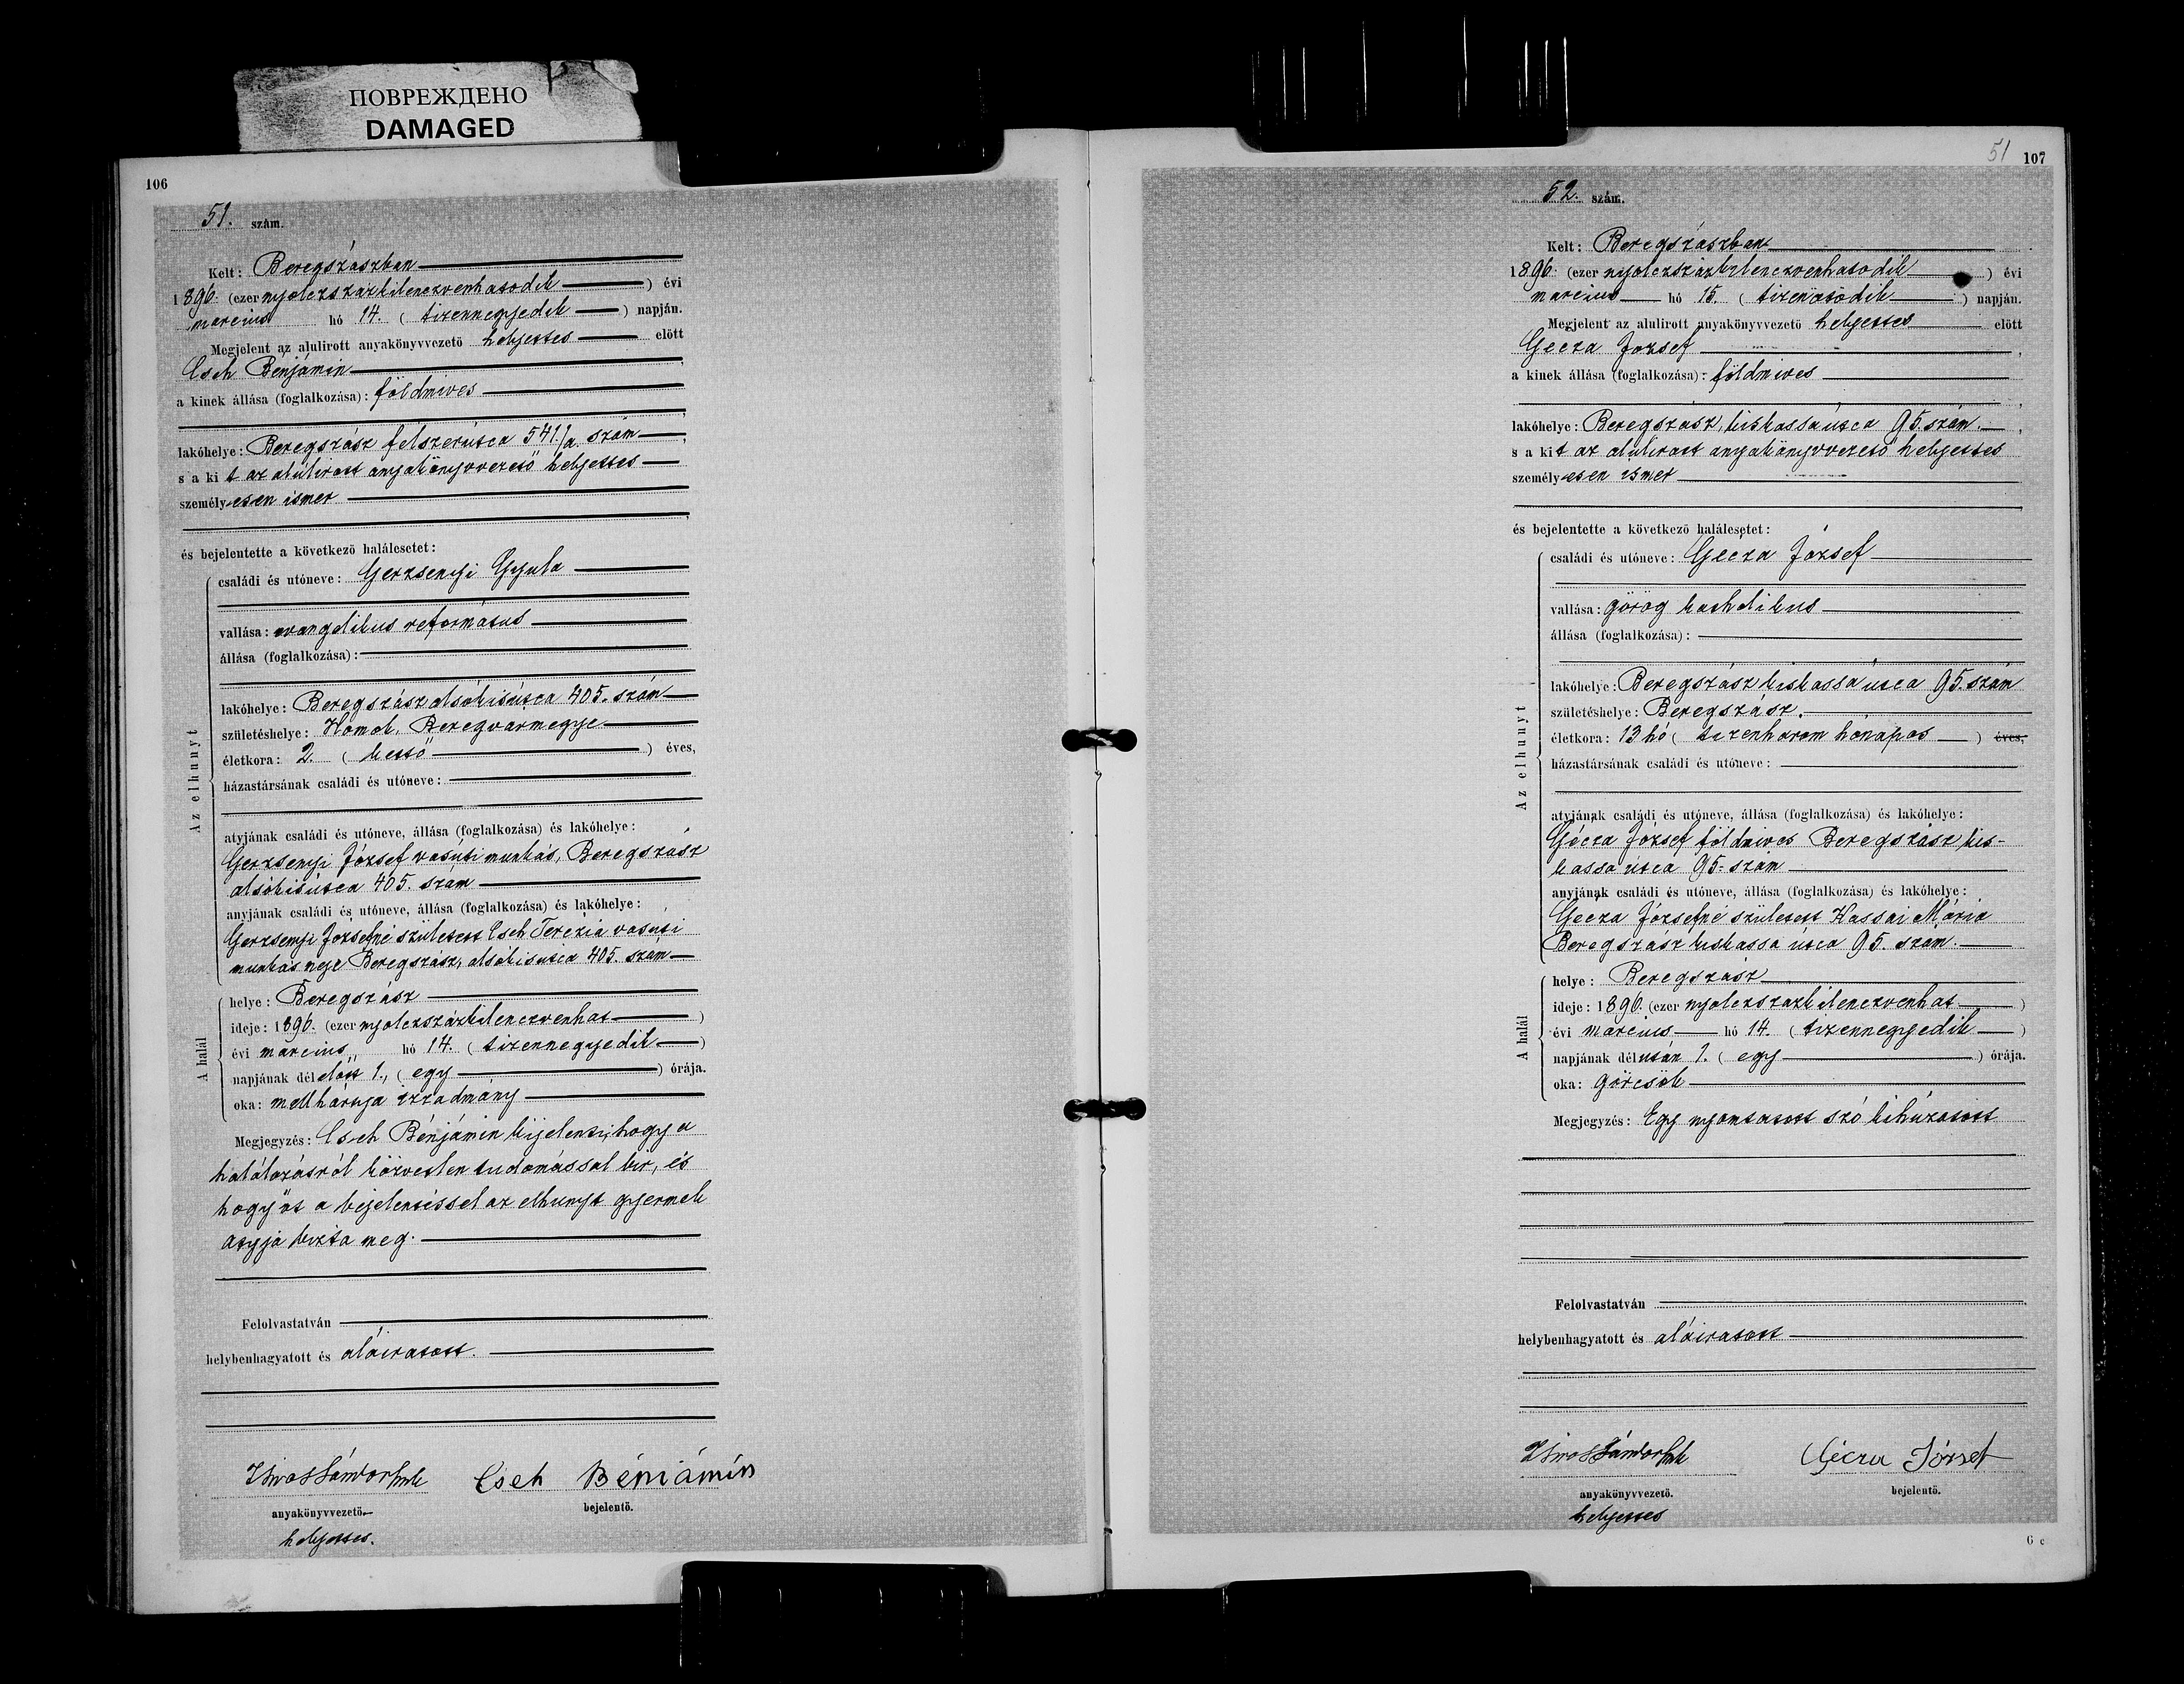 ПОВРЕЖДЕНО
DAMAGED
106
51. szám.
Kelt: Beregszászban
1896. (ezer nyolczszázkilenczvenhatodik) évi
marcius hó 14. (tizennegyedik) napján.
Megjelent az alulirott anyakönyvvezető helyettes előtt
Cseh Bénjámin,
a kinek állása (foglalkozása): földmives
lakóhelye: Beregszász félszerútca 541/a. szám,
s a kit az alúlirott anyakönyvvezető helyettes
személyesen ismer
és bejelentette a következő halálesetet:
Az elhunyt
családi és utóneve: Gerzsenyi Gyula
vallása: evangelikus református
állása (foglalkozása):
lakóhelye: Beregszász alsókisútca 405. szám
születéshelye: Homok, Beregvarmegye
életkora: 2. (kettő) éves,
házastársának családi és utóneve:
atyjának családi és utóneve, állása (foglalkozása) és lakóhelye:
Gerzsenyi József vasúti munkás, Beregszász
alsókisútca 405. szám
anyjának családi és utóneve, állása (foglalkozása) és lakóhelye:
Gerzsenyi Józsefné született Cseh Terézia vasúti
munkás neje Beregszász, alsókisútca 405. szám
A halál
helye: Beregszász
ideje: 1896. (ezer nyolczszázkilenczvenhat)
évi marcius hó 14. (tizennegyedik)
napjának délelőtt 1., (egy) órája.
oka: mellhártya izzadmány
Megjegyzés: Cseh Bénjámin kijelenti, hogy a
halálozásról közvetlen tudomással bir, és
hogy őt a bejelentéssel az elhunyt gyermek
atyja bízta meg.
Felolvastatván
helybenhagyatott és aláiratott.
Cseh Béniámin
anyakönyvvezető
bejelentő.
helyettes.
51 107
52. szám.
Kelt: Beregszászban
1896. (ezer nyolczszázkilenczvenhatodik) évi
marcius hó 15. (tizenötödik) napján.
Megjelent az alulirott anyakönyvvezető helyettes előtt
Gécza József,
a kinek állása (foglalkozása): földmives
lakóhelye: Beregszász, kiskassa útca 95. szám,
s a kit az alúlirott anyakönyvvezető helyettes
személyesen ismer
és bejelentette a következő halálesetet:
Az elhunyt
családi és utóneve: Gécza József
vallása: görög katholikus
állása (foglalkozása):
lakóhelye: Beregszász kiskassa utca 95. szám
születéshelye: Beregszász.
életkora: 13 hó (tizenhárom hónapos) éves,
házastársának családi és utóneve:
atyjának családi és utóneve, állása (foglalkozása) és lakóhelye:
Gécza József földmives Beregszász kis-
kassa útca 95. szám
anyjának családi és utóneve, állása (foglalkozása) és lakóhelye:
Gécza Józsefné született Kassai Mária
Beregszász kiskassa útca 95. szám.
A halál
helye: Beregszász
ideje: 1896. (ezer nyolczszázkilenczvenhat)
évi marcius hó 14. (tizennegyedik)
napjának délután 1. (egy) órája.
oka: görcsök
Megjegyzés: Egy nyomtatott szó kihúzatott
Felolvastatván
helybenhagyatott és aláiratott
Gécza József
anyakönyvvezető.
bejelentő.
helyettes
6 c